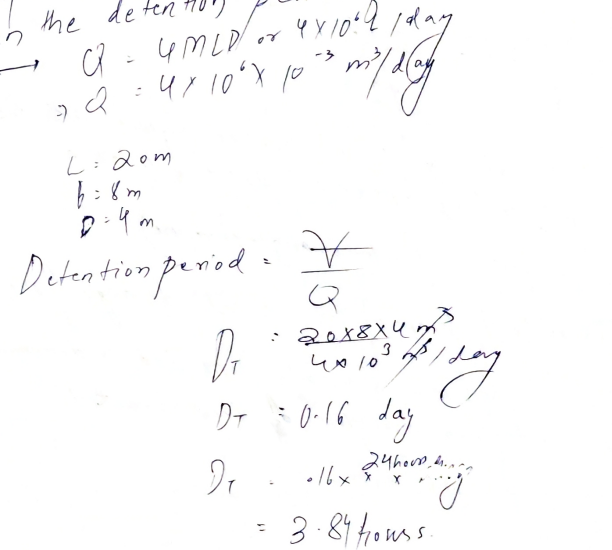 the detention
→ Q = 4 MLD or 4×10⁶ l/day
⇒ Q = 4×10⁶×10⁻³ m³/day
L = 20m
b = 8m
D = 4m
Detention period = V/Q
D_T = 20×8×4 m³ / 4×10³ m³/day
D_T = 0.16 day
D_T = .16 × 24 hours
= 3.84 hours.